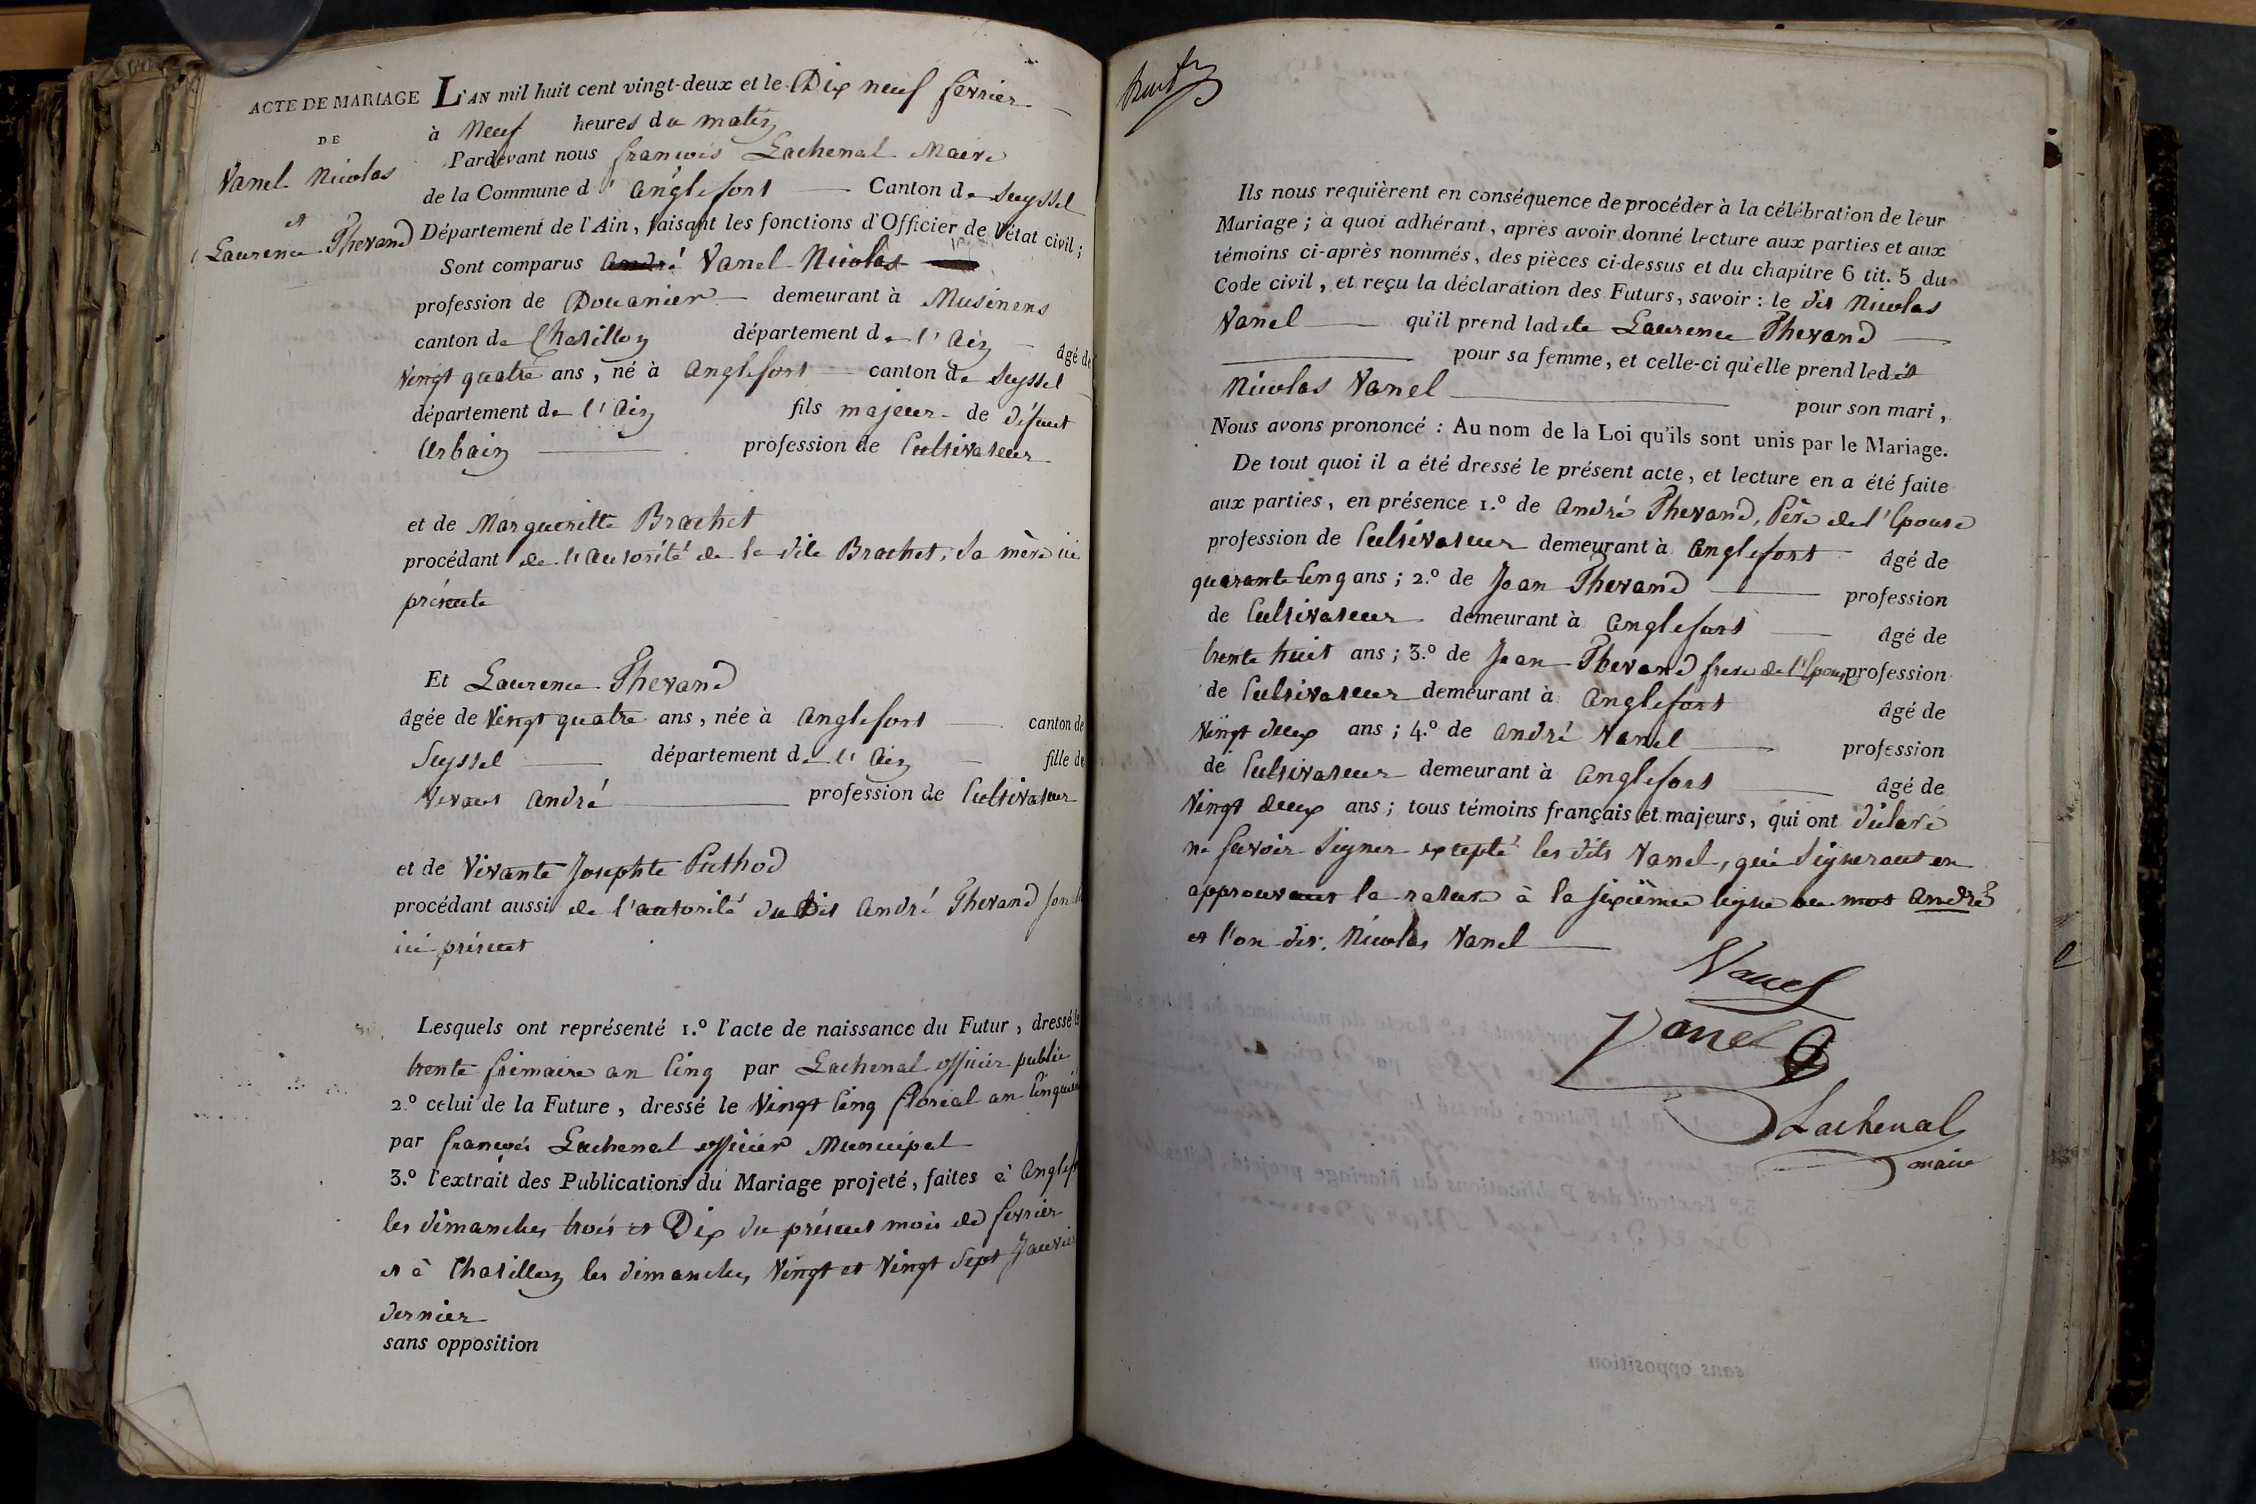 ACTE DE MARIAGE
DE
Vanel Nicolas
et
Laurence Thevand
L'AN mil huit cent vingt-deux et le Dix neuf fevrier
à Neuf heures du matin
Pardevant nous françois Lachenal Maire
de la Commune d' anglefort Canton de Seyssel
Département de l'Ain, faisant les fonctions d'Officier de l'état civil;
Sont comparus andré Vanel Nicolas
profession de Douanier demeurant à Musinens
canton de Chatillon département de l'Ain âgé de
Vingt quatre ans, né à anglefort canton de Seyssel
département de l'Ain fils majeur de défunt
Urbain profession de Cultivateur
et de Margueritte Brachet
procédant de l'autorité de la dite Brachet, Sa mère ici
présente
Et Laurence Thevand
âgée de Vingt quatre ans, née à anglefort canton de
Seyssel département de l'Ain fille de
Vivant andré profession de Cultivateur
et de Vivante Josephte Puthod
procédant aussi de l'autorité du Dit andré Thevand son
ici présent
Lesquels ont représenté 1.º l'acte de naissance du Futur, dressé le
trente frimaire an Cinq par Lachenal officier public
2.º celui de la Future, dressé le Vingt Cinq floreal an
par françois Lachenal officier Municipal
3.º l'extrait des Publications du Mariage projeté, faites à Anglef
les dimanches trois et Dix du présent mois de fevrier
et à Chatillon les dimanches Vingt et Vingt Sept Janvier
dernier
sans opposition
Ils nous requièrent en conséquence de procéder à la célébration de leur
Mariage; à quoi adhérant, après avoir donné lecture aux parties et aux
témoins ci-après nommés, des pièces ci-dessus et du chapitre 6 tit. 5 du
Code civil, et reçu la déclaration des Futurs, savoir: le dit Nicolas
Vanel qu'il prend ladite Laurence Thevand
pour sa femme, et celle-ci qu'elle prend ledit
Nicolas Vanel pour son mari,
Nous avons prononcé: Au nom de la Loi qu'ils sont unis par le Mariage.
De tout quoi il a été dressé le présent acte, et lecture en a été faite
aux parties, en présence 1.º de André Thevand, Père de l'Epouse
profession de Cultivateur demeurant à anglefort âgé de
quarante Cinq ans; 2.º de Jean Thevand profession
de Cultivateur demeurant à anglefort âgé de
trente huit ans; 3.º de Jean Thevand frere de l'Epouse profession
de Cultivateur demeurant à anglefort âgé de
Vingt deux ans; 4.º de andré Vanel profession
de Cultivateur demeurant à anglefort âgé de
Vingt deux ans; tous témoins français et majeurs, qui ont déclaré
ne Savoir Signer excepté les dits Vanel, qui Signeront en
approuvant la rature à la sixième ligne au mot andré
et l'on dit: Nicolas Vanel
Vanel
Vanel
Lachenal
maire